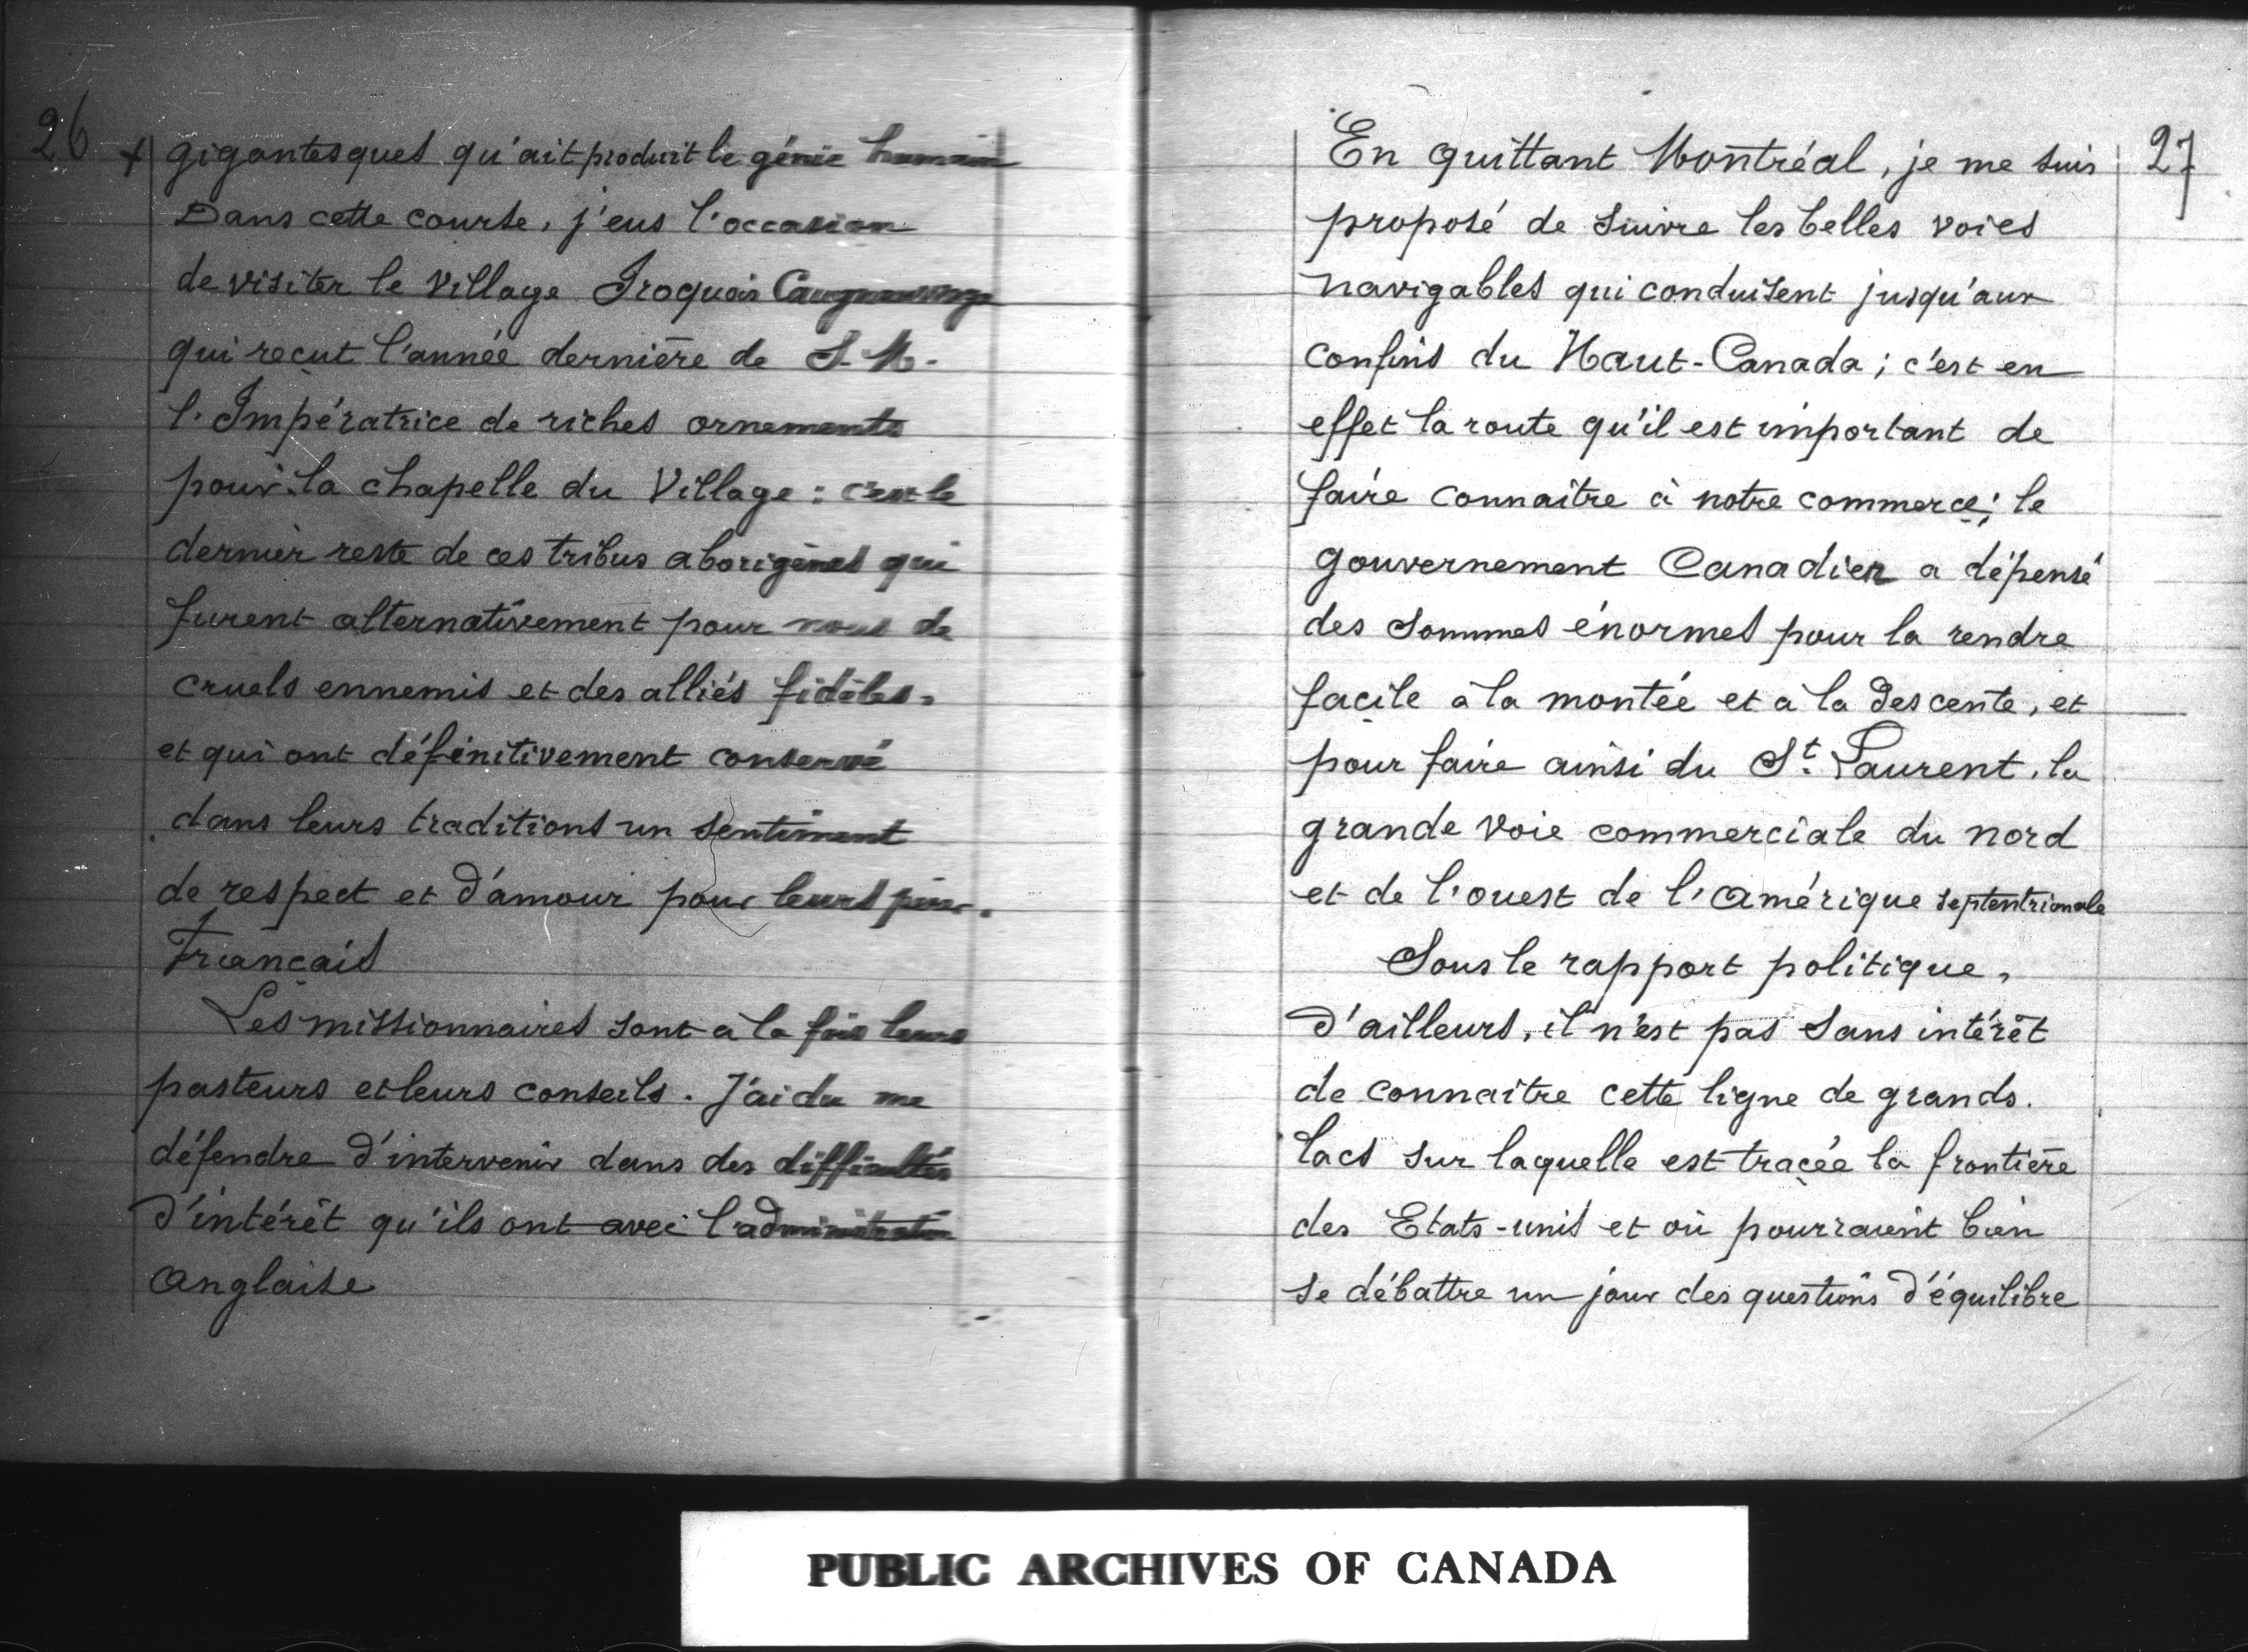 26
+ gigantesques qu'ait produit le génie humain
Dans cette course, j'eus l'occasion
de visiter le village Iroquois
qui reçut l'année dernière de S. M.
l'Impératrice de riches ornements
pour la chapelle du Village : c'est le
dernier reste de ces tribus aborigènes qui
furent alternativement pour nous de
cruels ennemis et des alliés fidèles,
et qui ont définitivement conservé
dans leurs traditions un sentiment
de respect et d'amour pour leurs
Français
Les missionnaires sont à la fois leurs
pasteurs et leurs conseils. J'ai du me
défendre d'intervenir dans des difficultés
d'intérêt qu'ils ont avec l'administration
Anglaise
27
En quittant Montréal, je me suis
proposé de suivre les belles voies
navigables qui conduisent jusqu'aux
confins du Haut-Canada ; c'est en
effet la route qu'il est important de
faire connaître à notre commerce ; le
gouvernement Canadien a dépensé
des sommes énormes pour la rendre
façile à la montée et à la descente, et
pour faire ainsi du St. Laurent, la
grande voie commerciale du nord
et de l'ouest de l'Amérique septentrionale
Sous le rapport politique,
d'ailleurs, il n'est pas sans intérêt
de connaître cette ligne de grands.
lacs sur laquelle est traçée la frontière
des Etats-unis et où pourraient bien
se débattre un jour des questions d'équilibre
PUBLIC ARCHIVES OF CANADA